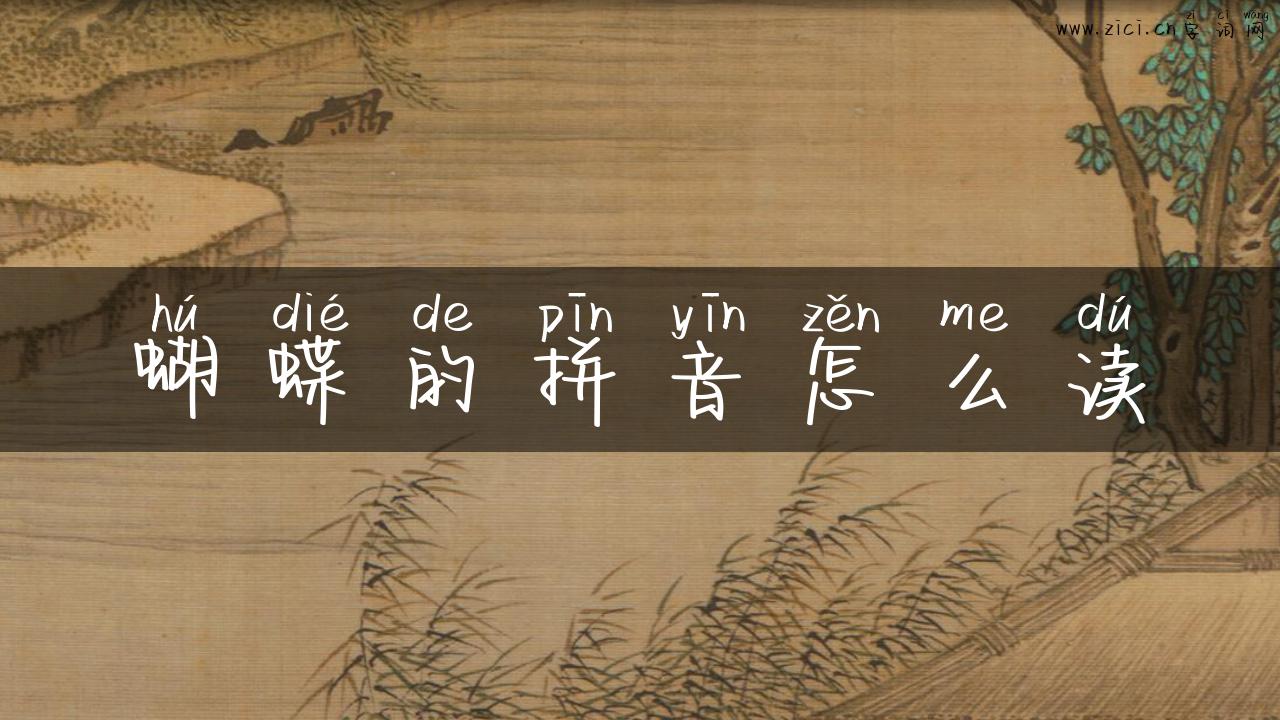 zì cí wǎng
www.zici.cn字词网
hú dié de pīn yīn zěn me dú
蝴蝶的拼音怎么读